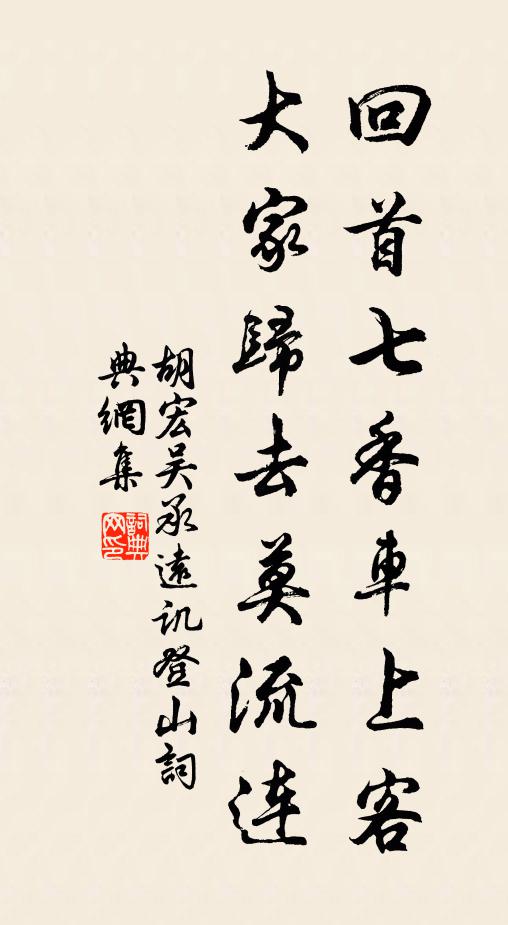 回首七香車上客
大家歸去莫流連
胡宏吴承遠訊登山詞
典網集
詞典
网印